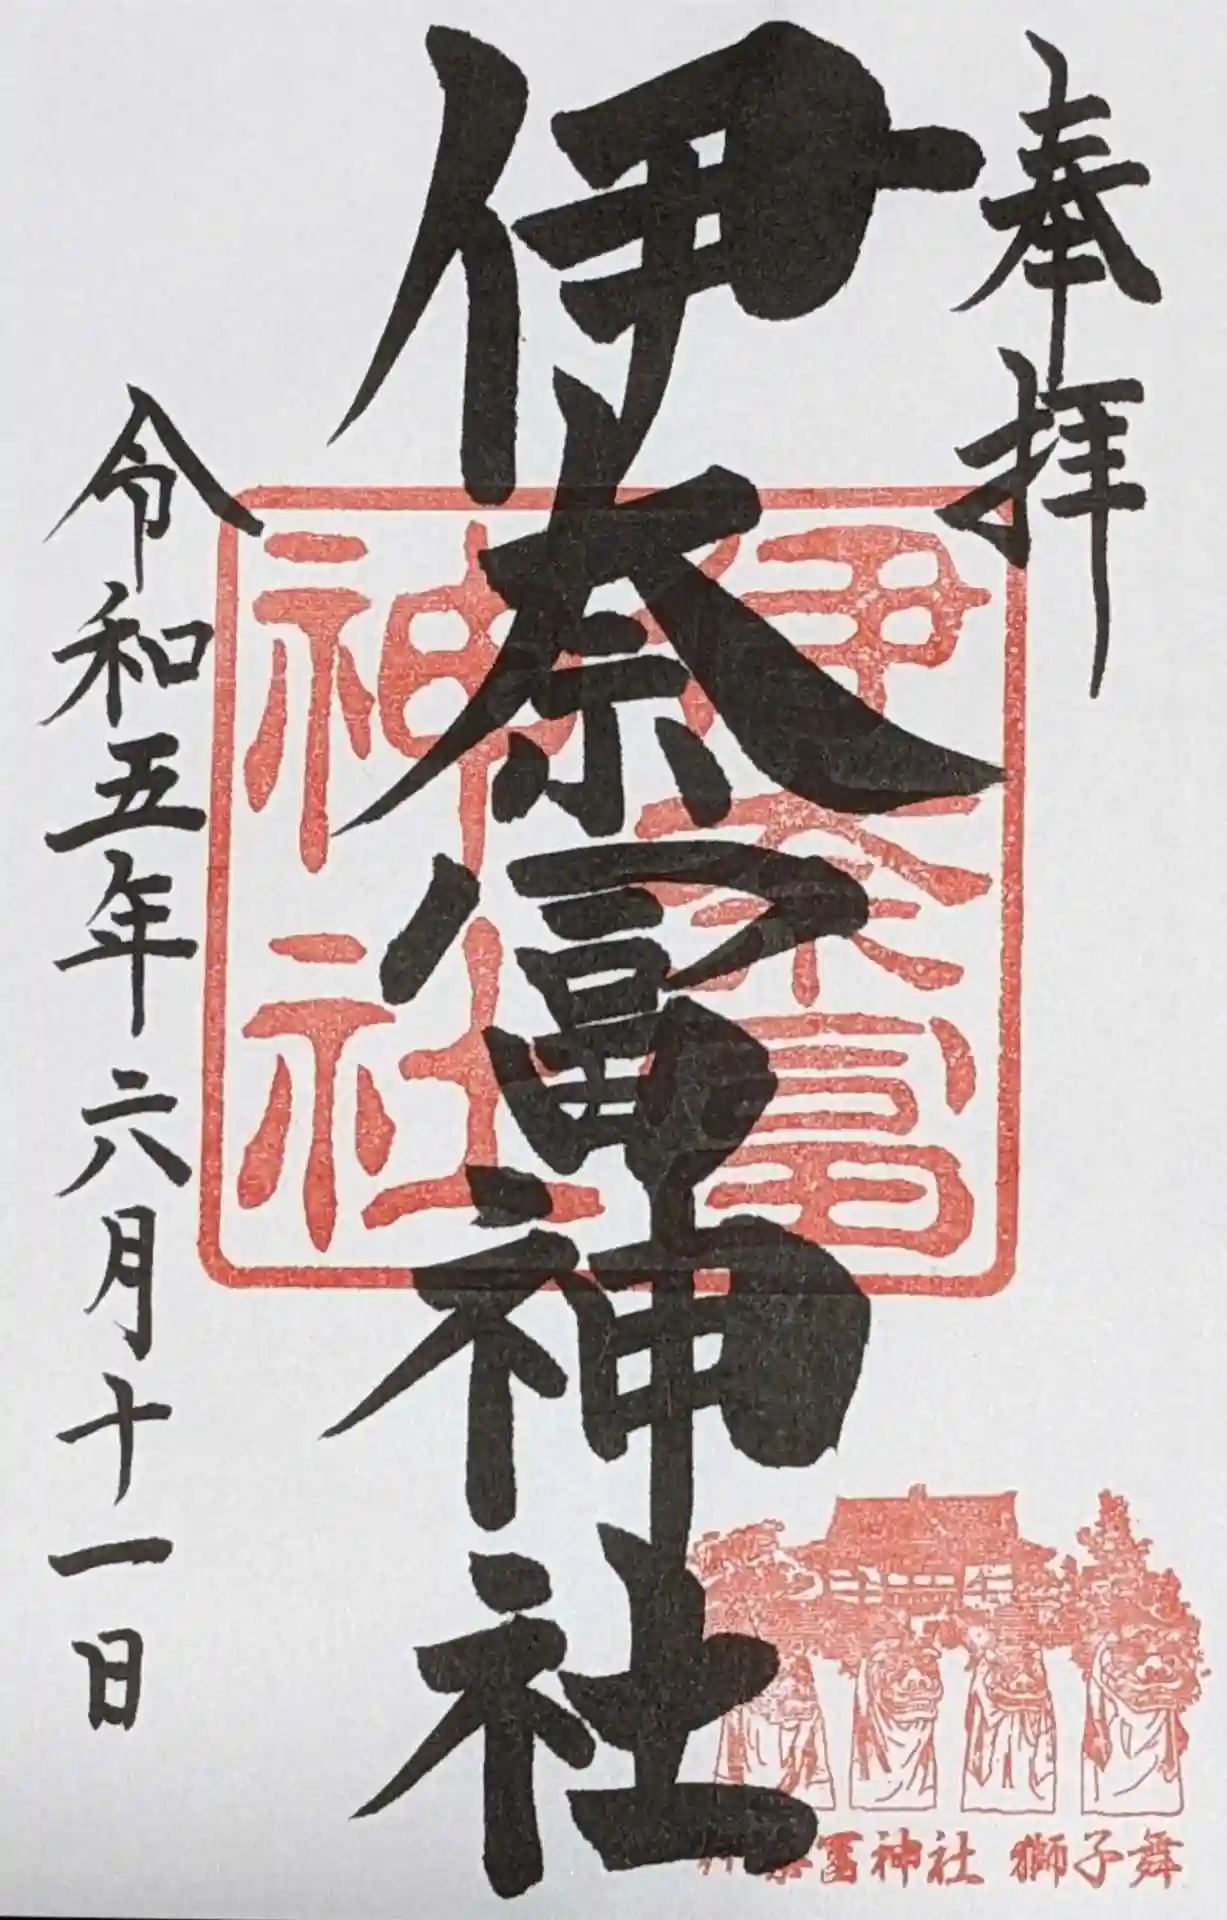 奉拝
伊奈冨神社
伊奈冨
神社
令和五年六月十一日
伊奈冨神社 獅子舞